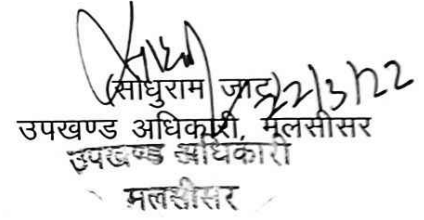 (साधुराम जाट) 22/3/22
उपखण्ड अधिकारी, मलसीसर
उपखण्ड अधिकारी
मलसीसर